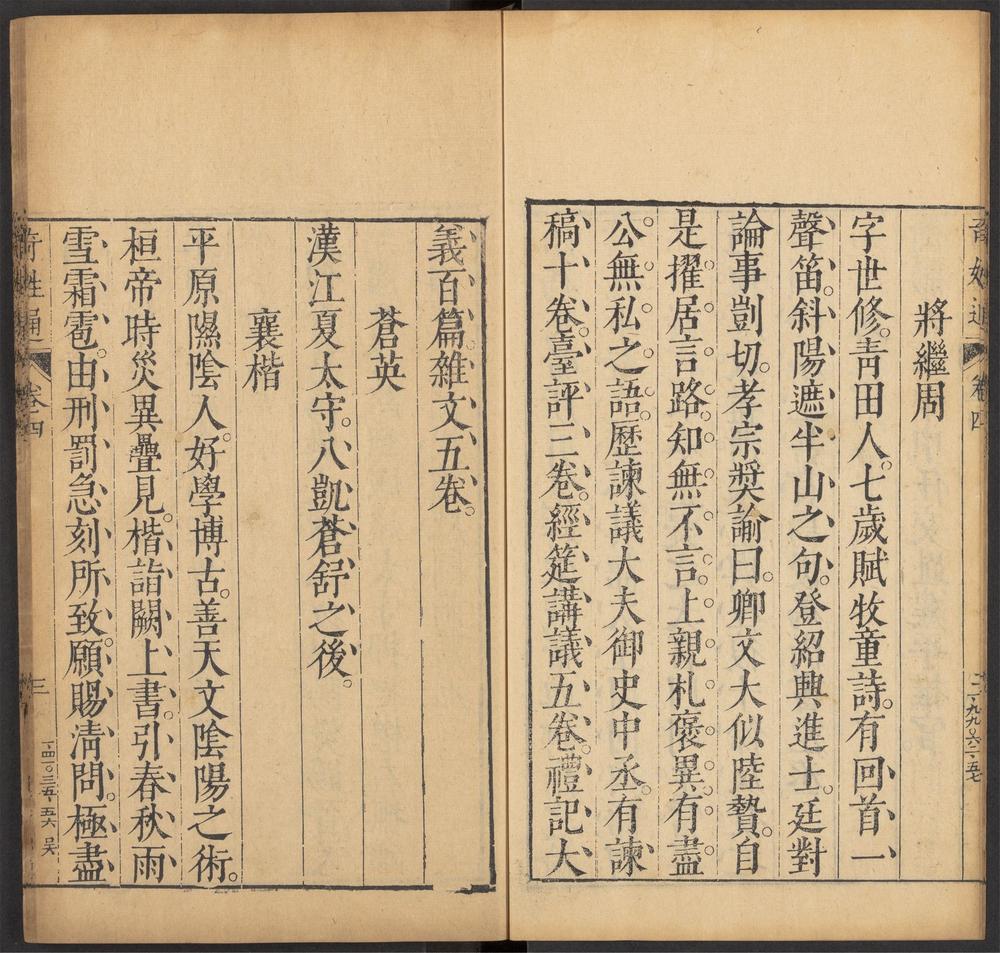 將繼周
字世修。青田人。七歲賦牧童詩。有回首一
聲笛。斜陽遮半山之句。登紹興進士。廷對
論事剴切。孝宗獎諭曰。卿文大似陸贄。自
是擢居言路。知無不言。上親札褒異。有盡
公無私之語。歷諫議大夫御史中丞。有諫
稿十卷。臺評三卷。經筵講議五卷。禮記大
義百篇。雜文五卷。
蒼英
漢江夏太守。八凱蒼舒之後。
襄楷
平原隰陰人。好學博古。善天文陰陽之術。
桓帝時災異疊見。楷詣闕上書。引春秋雨
雪霜雹。由刑罰急刻所致。願賜清問。極盡
奇姓通
卷四
三